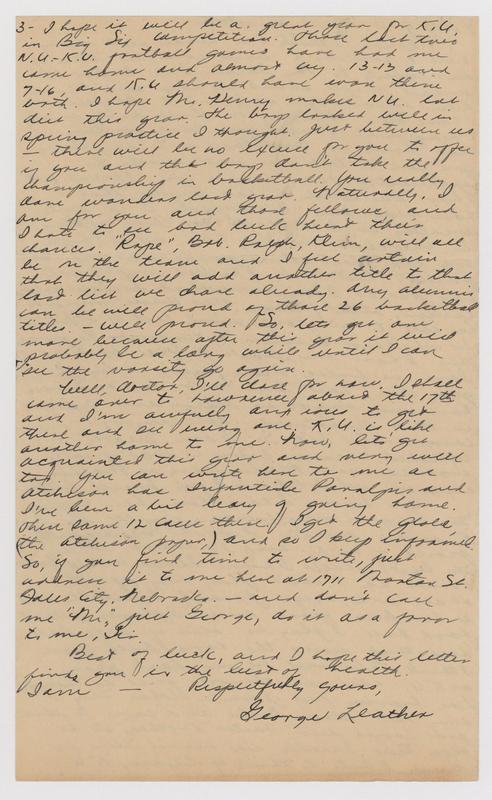 3- I hope it will be a great year for K.U.
in Big Six competition. Those last two
N.U.-K.U. football games have had me
come home and almost cry. 13-13 and
7-16, and K.U should have won them
both. I hope Mr. Henry makes N.U. eat
dirt this year. The boys looked well in
spring practice I thought. Just between us
- there will be no excuse for you to offer
if you and the boys don't take the
championship in basketball. You really
done wonders last year. Naturally, I
am for you and those fellows, and
I hate to see bad luck hurt their
chances. "Rope", Bob. Ralph, Kleim, will all
be on the team and I feel certain
that they will add another title to that
last list we have already. Any alumnis
can be well proud of those 26 basketball
titles. - well proud. So, lets get one
more because after this year it will
probably be a long while until I can
see the varsity go again.
Well, doctor, I'll close for now. I shall
come over to Lawrence about the 17th
and I'm awfully anxious to get
there and see every one. K.U. is like
another home to me. Now, lets get
acquainted this year and very well
too. You can write here to me as
Atchison has Infantile Paralysis and
I've been a bit leary of going home.
Over some 12 cases there. I get the Globe
(the Atchison paper,) and so I keep informed.
So, if you find time to write, just
address it to me here at 1711 St.
Falls City, Nebraska. - and don't call
me "Mr.", just George, do it as a favor
to me, Sir.
Best of luck, and I hope this letter
finds you in the best of health.
I am - Respectfully yours,
George Leather